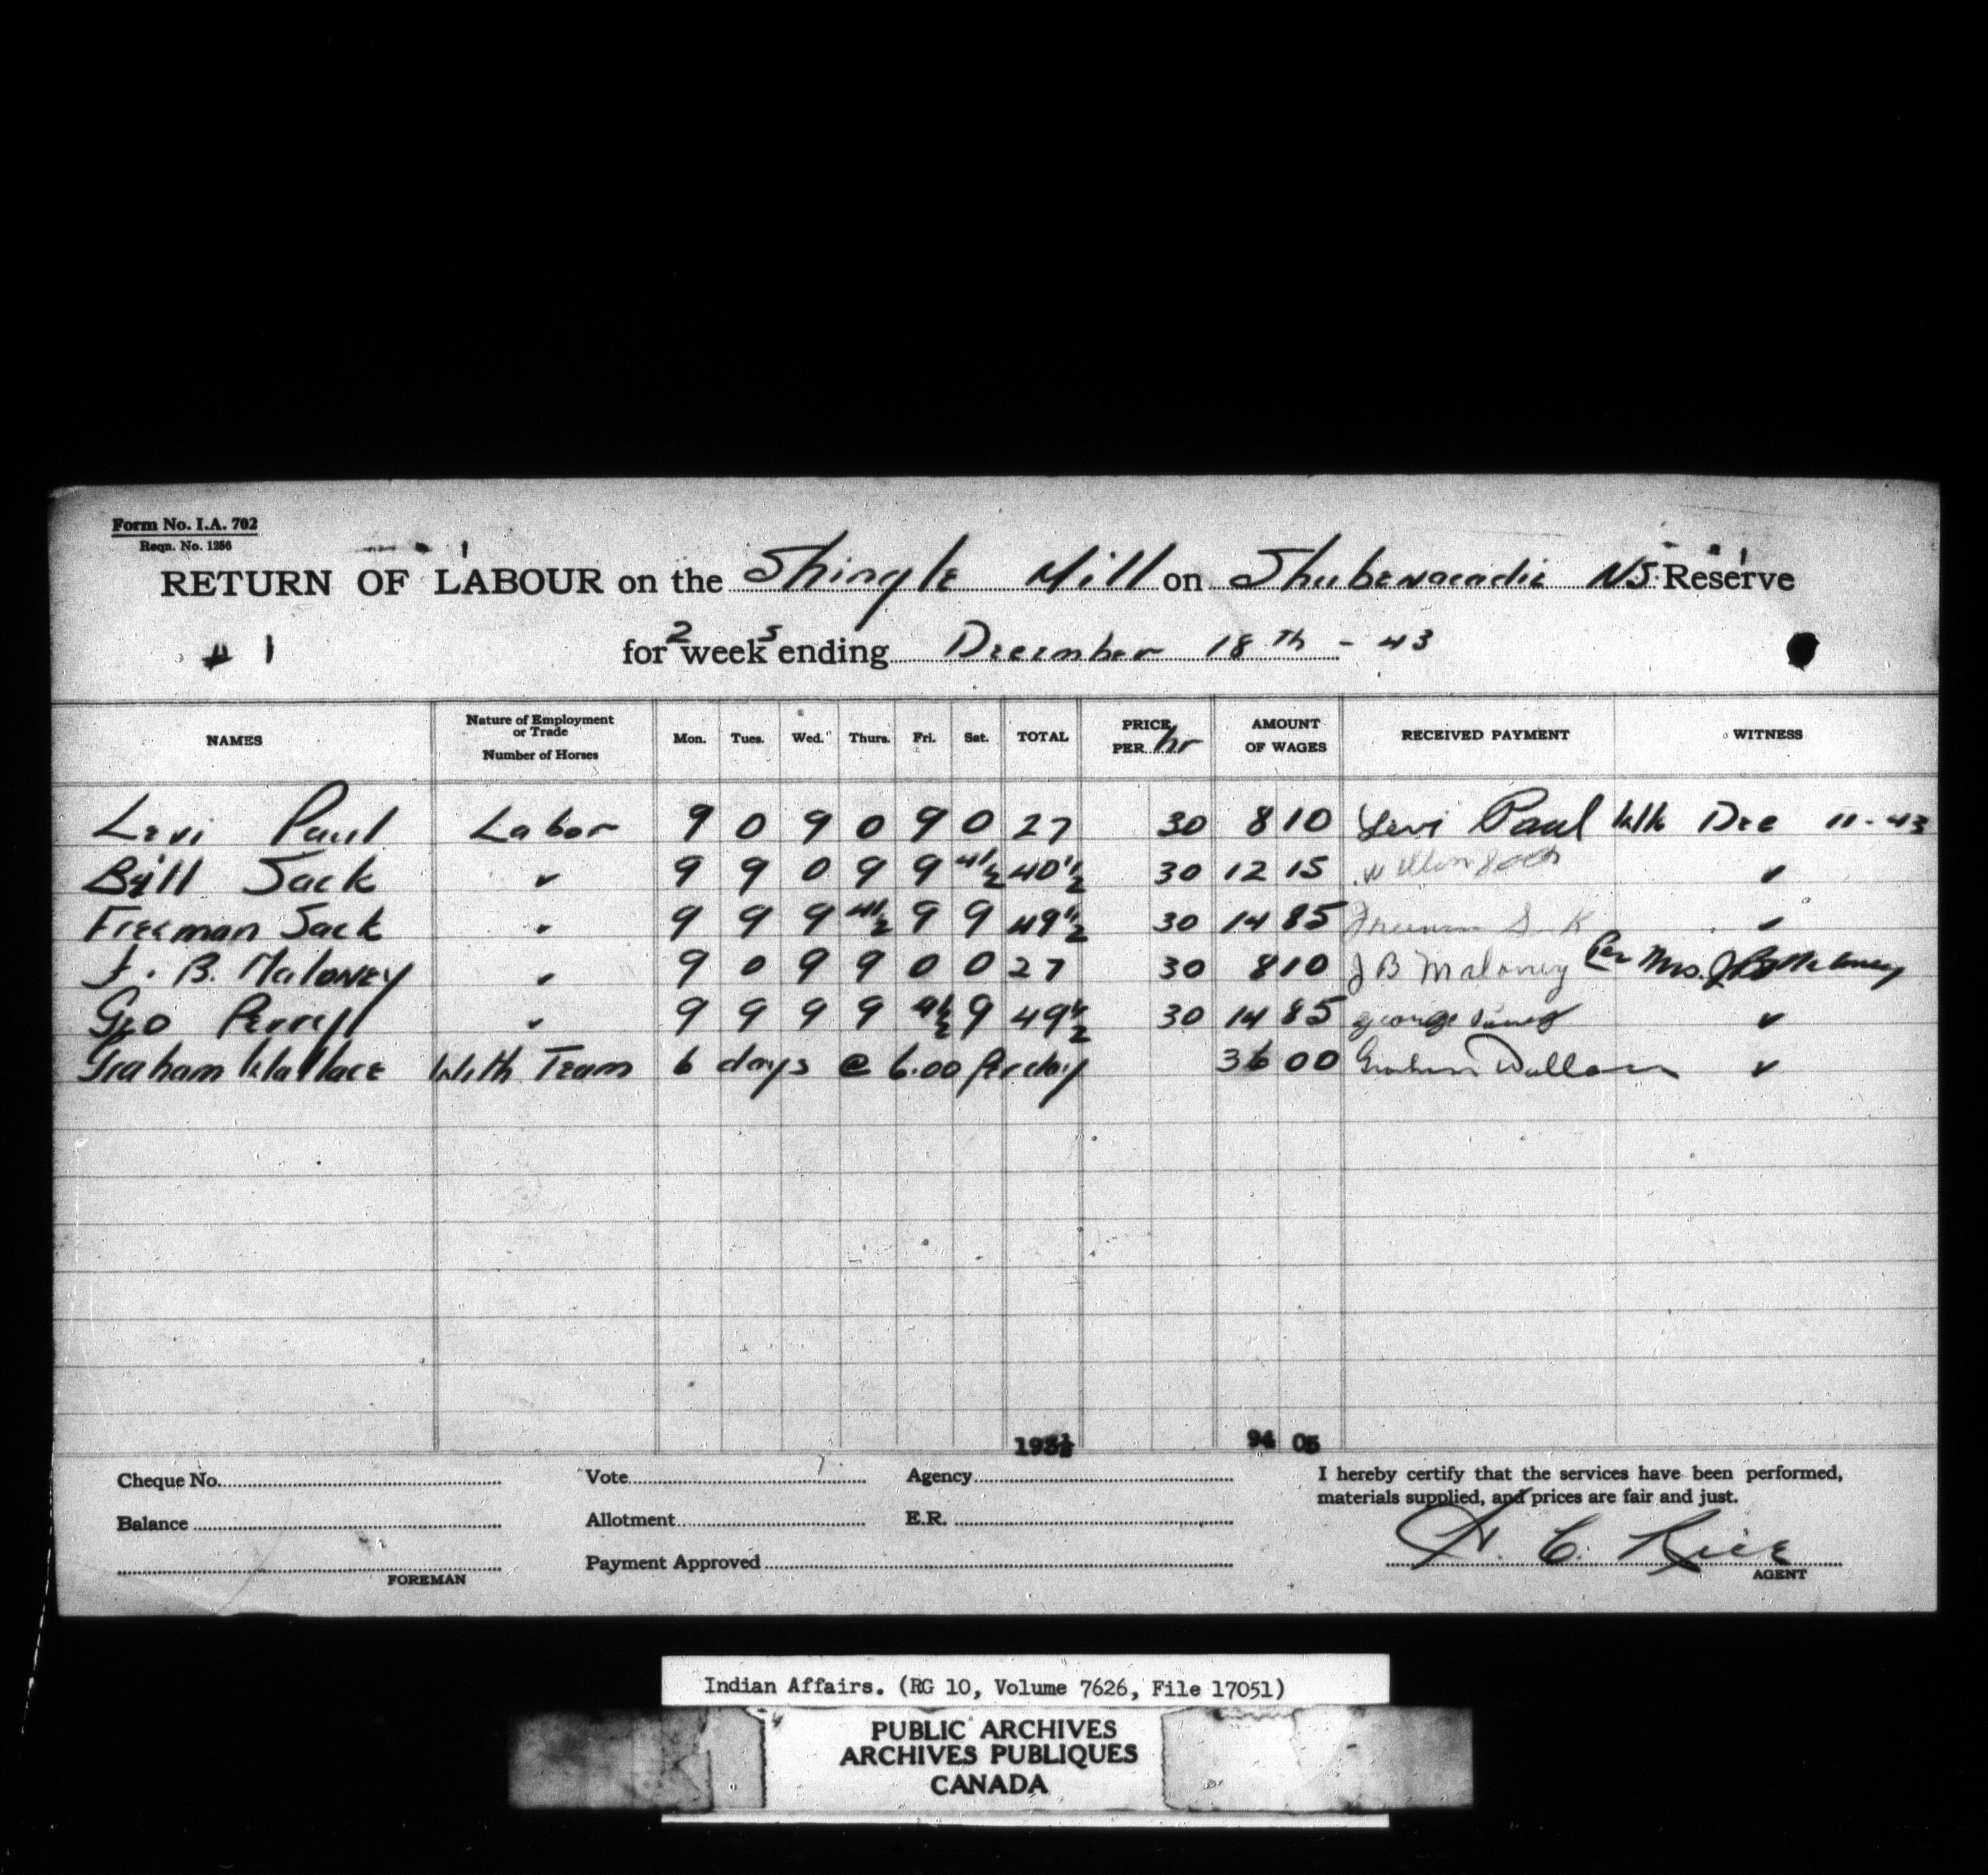 Form No. I.A. 702
Reqn. No. 1256
RETURN OF LABOUR on the Shingle Mill on Shubenacadie N.S. Reserve
# 1 for 2 weeks ending December 18th - 43
NAMES Nature of Employment or Trade Number of Horses Mon. Tues. Wed. Thurs. Fri. Sat. TOTAL PRICE PER hr AMOUNT OF WAGES RECEIVED PAYMENT WITNESS
Levi Paul Labor 9 0 9 0 9 0 27 30 8 10 Levi Paul Wk Dec 11 - 43
Bill Sack " 9 9 0 9 9 4½ 40½ 30 12 15 "
Freeman Sack " 9 9 9 4½ 9 9 49½ 30 14 85 Freeman "
J. B. Maloney " 9 0 9 9 0 0 27 30 8 10 J B Maloney Per Mrs. J B Maloney
Geo " 9 9 9 9 4½ 9 49½ 30 14 85 George "
Graham Wallace With Team 6 days @ 6.00 per day 36 00 Graham Wallace "
193½ 94 05
Cheque No. Vote Agency I hereby certify that the services have been performed,
materials supplied, and prices are fair and just.
Balance Allotment E.R.
Payment Approved H. C. Rice
FOREMAN AGENT
Indian Affairs. (RG 10, Volume 7626, File 17051)
PUBLIC ARCHIVES
ARCHIVES PUBLIQUES
CANADA